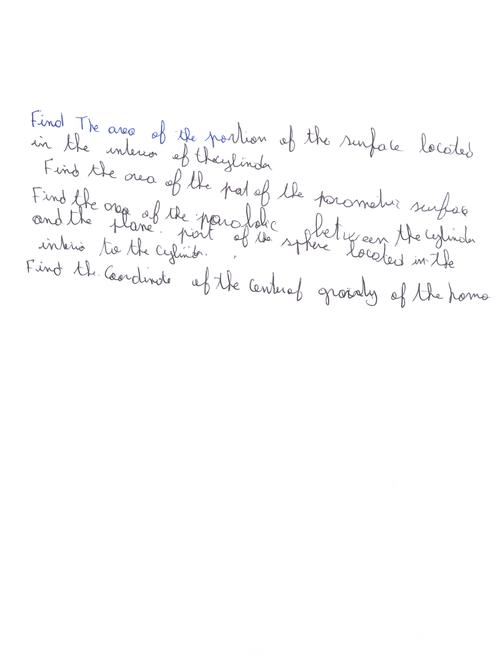 Find The area of the portion of the surface located
in the interior of the cylinder
Find the area of the part of the parametric surface
Find the area of the parabolic between the cylinder
and the plane. part of the sphere located in the
interio to the cylinder.
Find the Coordinate of the center of gravity of the homo